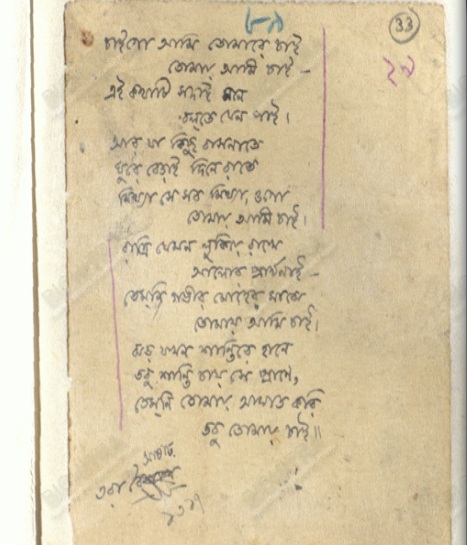 ৮৯
33
চাইগো আমি তোমারে চাই
তোমায় আমি চাই —
এই কথাটি সদাই মনে
বলতে যেন পাই।
আর যা কিছু বাসনাতে
ঘুরে বেড়াই দিনে রাতে
মিথ্যা সে সব মিথ্যা, ওগো
তোমায় আমি চাই।
রাত্রি যেমন লুকিয়ে রাখে
আলোর প্রার্থনাই —
তেমনি গভীর মোহের মাঝে
তোমায় আমি চাই।
ঝড় যখন শান্তিরে হানে
তবু শান্তি চায় সে প্রাণে,
তেমনি তোমায় আঘাত করি
তবু তোমায় চাই॥
আষাঢ়
৩রা
১৩১৭